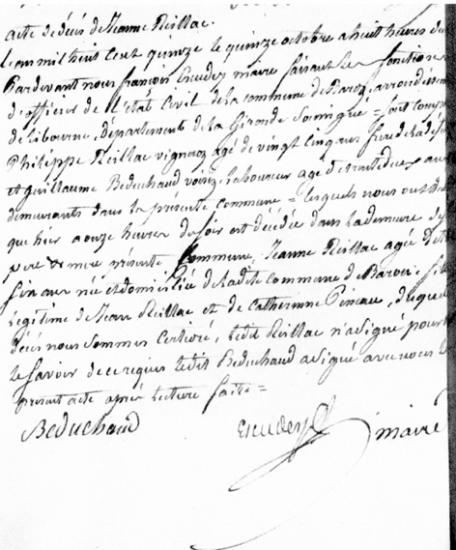 acte de décès de Jeanne Reillac.
L'an mil huit cent quinze le quinze octobre a huit heures du
Pardevant nous françois Escudey maire faisant les fonctions
d'officier de l'état Civil de la commune de arrondissem
de Libourne, Département de la Gironde Soussigné = sont comp
Philippe Reillac vigneron agé de vingt cinq ans frere de la déf
et guillaume Beduchaud voisin laboureur agé de trente deux ans
demeurants dans la présente commune = lesquels nous ont
qui hier a onze heures du soir est décédée dans la demeure de
pere & mere présente Commune, Jeanne Reillac agée de
ans née et domiciliée de ladite Commune de fi
légitime de Jean Reillac et de Catherine Pineau, duquel
décès nous sommes Certioré, ledit Reillac n'a signé pour
le savoir de ce requis ledit Beduchaud a signé avec nous le
présent acte après lecture faite =
Beduchaud Escudey maire